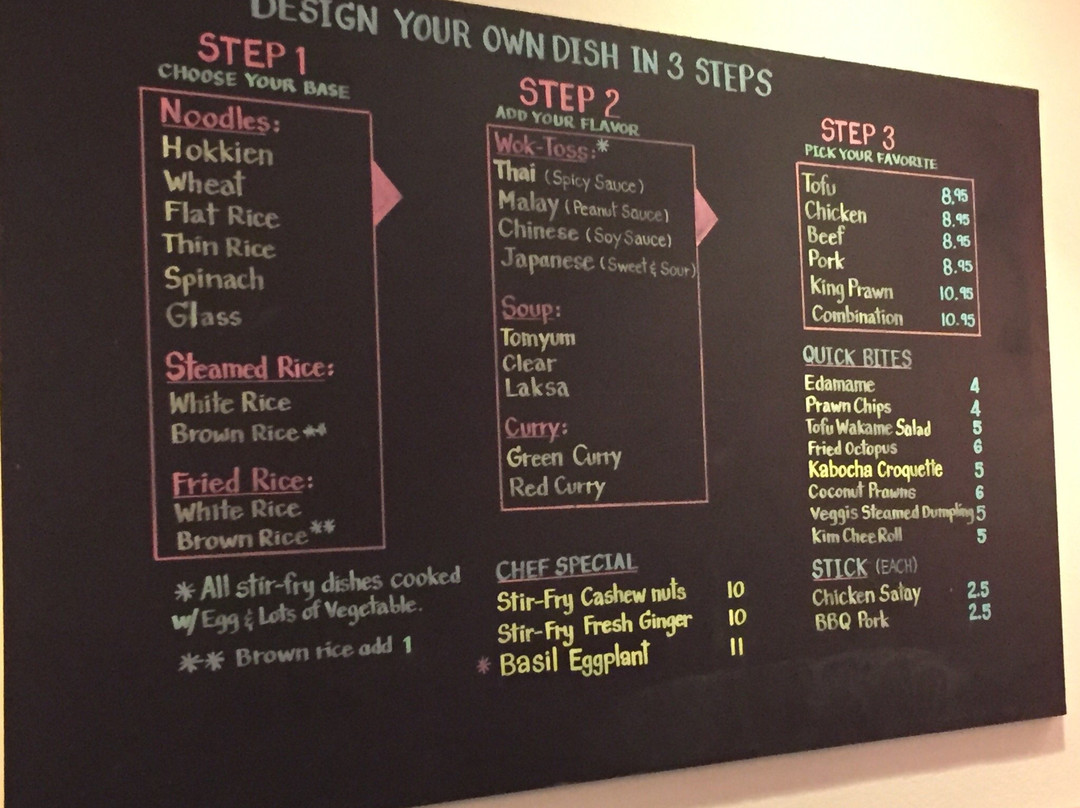 DESIGN YOUR OWN DISH IN 3 STEPS
STEP 1
CHOOSE YOUR BASE
Noodles:
Hokkien
Wheat
Flat Rice
Thin Rice
Spinach
Glass
Steamed Rice:
White Rice
Brown Rice **
Fried Rice:
White Rice
Brown Rice **
* All stir-fry dishes cooked
w/ Egg & Lots of Vegetable.
** Brown rice add 1
STEP 2
ADD YOUR FLAVOR
Wok-Toss:*
Thai (Spicy Sauce)
Malay (Peanut Sauce)
Chinese (Soy Sauce)
Japanese (Sweet & Sour)
Soup:
Tomyum
Clear
Laksa
Curry:
Green Curry
Red Curry
CHEF SPECIAL
Stir-Fry Cashew nuts 10
Stir-Fry Fresh Ginger 10
* Basil Eggplant 11
STEP 3
PICK YOUR FAVORITE
Tofu 8.95
Chicken 8.95
Beef 8.95
Pork 8.95
King Prawn 10.95
Combination 10.95
QUICK BITES
Edamame 4
Prawn Chips 4
Tofu Wakame Salad 5
Fried Octopus 6
Kabocha Croquette 5
Coconut Prawns 6
Veggis Steamed Dumpling 5
Kim Chee Roll 5
STICK (EACH)
Chicken Satay 2.5
BBQ Pork 2.5